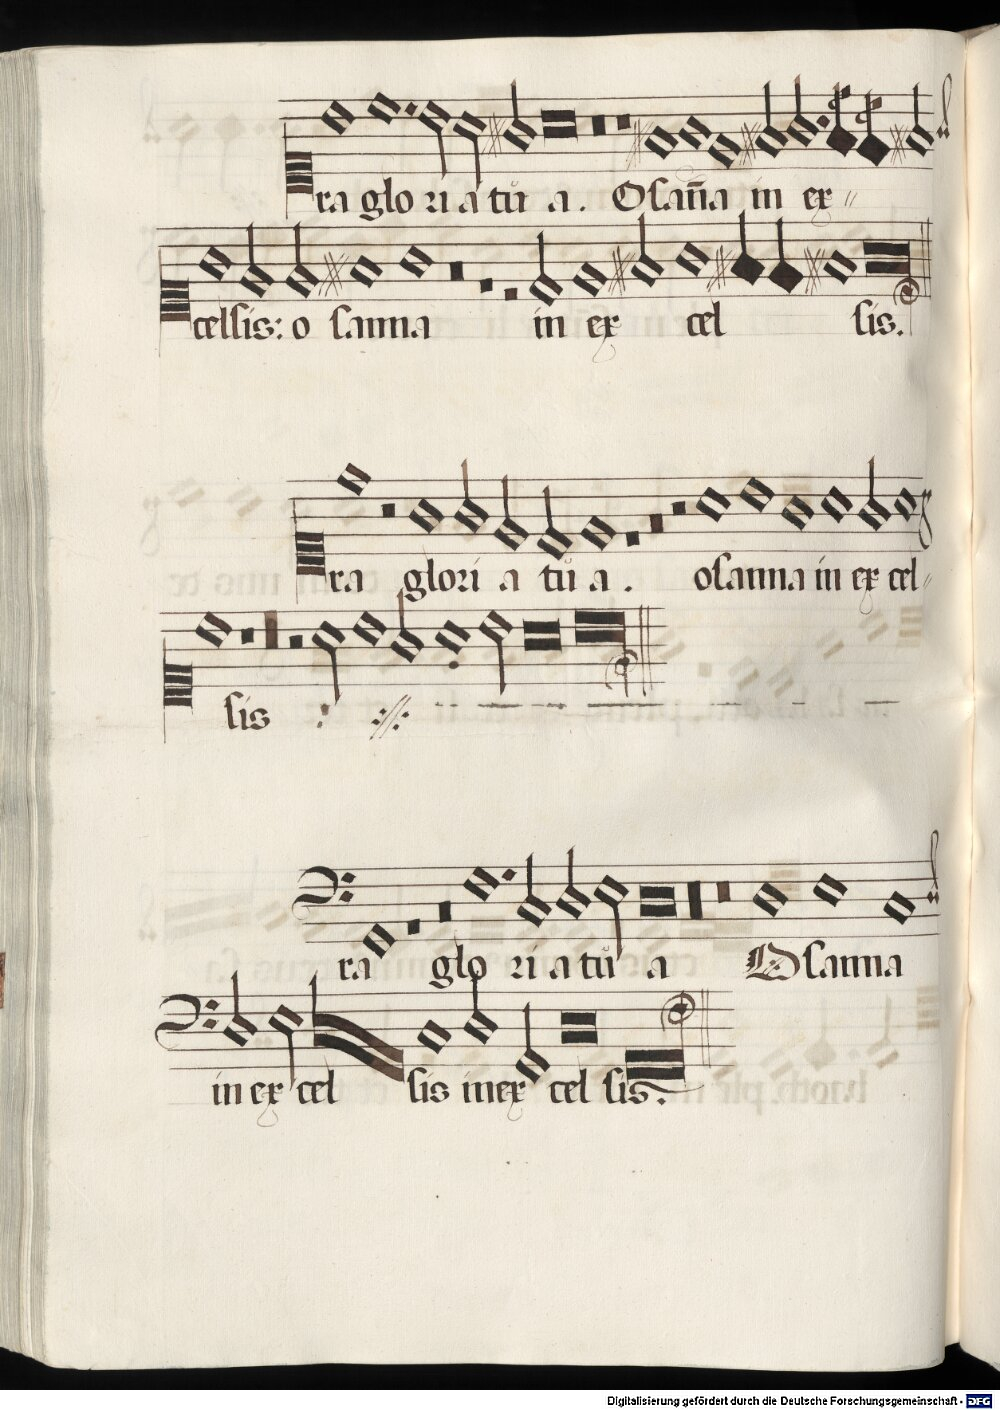 ra glo ri a tů a. Osan̄a in ex//
celsis: o sanna in ex cel sis.
ra glori a tů a. osanna in ex cel//
sis :://:
ra glo ri a tů a Osanna
in ex cel sis in ex cel sis.
Digitalisierung gefördert durch die Deutsche Forschungsgemeinschaft - DFG